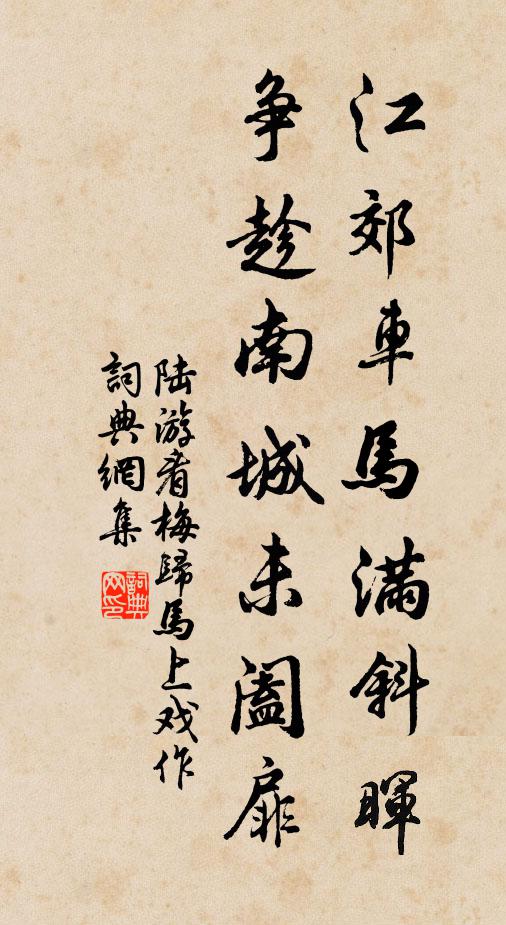 江郊車馬滿斜暉
争趁南城未阖扉
陆游看梅歸馬上戏作
詞典網集
詞典网印